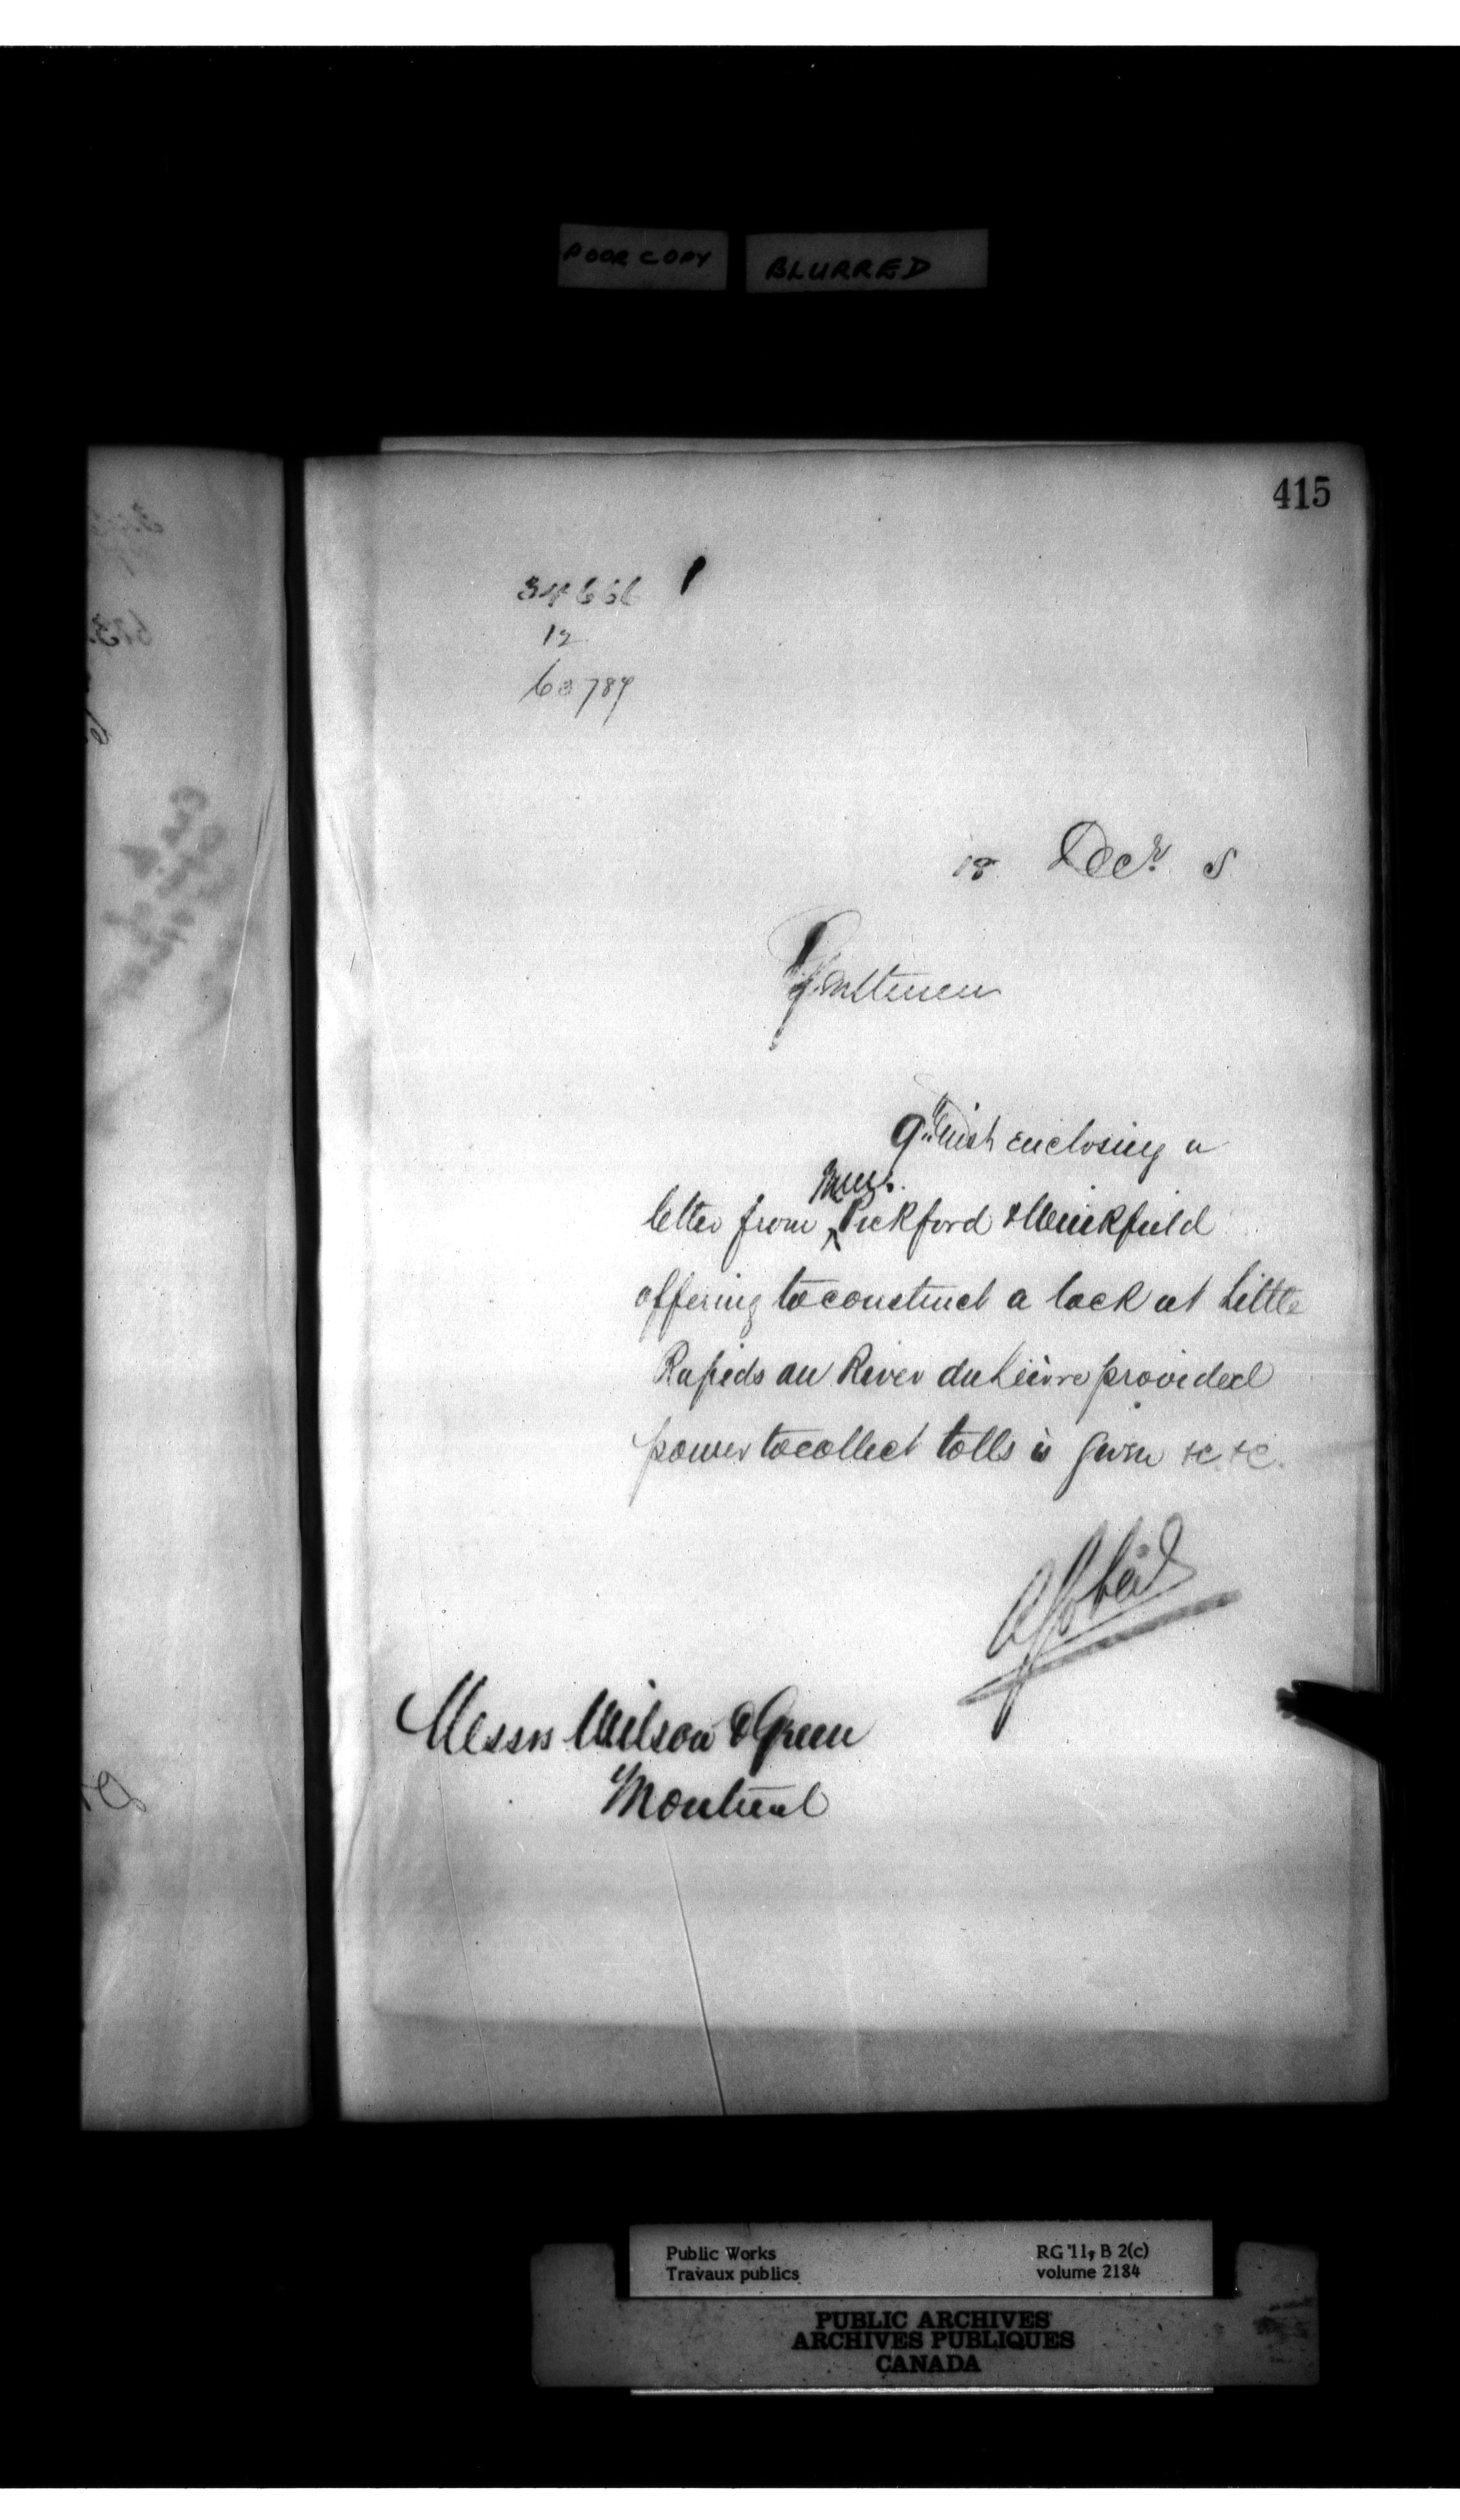 POOR COPY BLURRED
415
12
60789
18 Decr. 5
Gentlemen
9th inst enclosing a
letter from Messrs. Pickford & Winkfield
offering to construct a lock at Little
Rapids on River du Lièvre provided
power to collect tolls is given &c. &c.
Messrs Wilson & Green
Montreal
Public Works RG 11, B 2(c)
Travaux publics volume 2184
PUBLIC ARCHIVES
ARCHIVES PUBLIQUES
CANADA